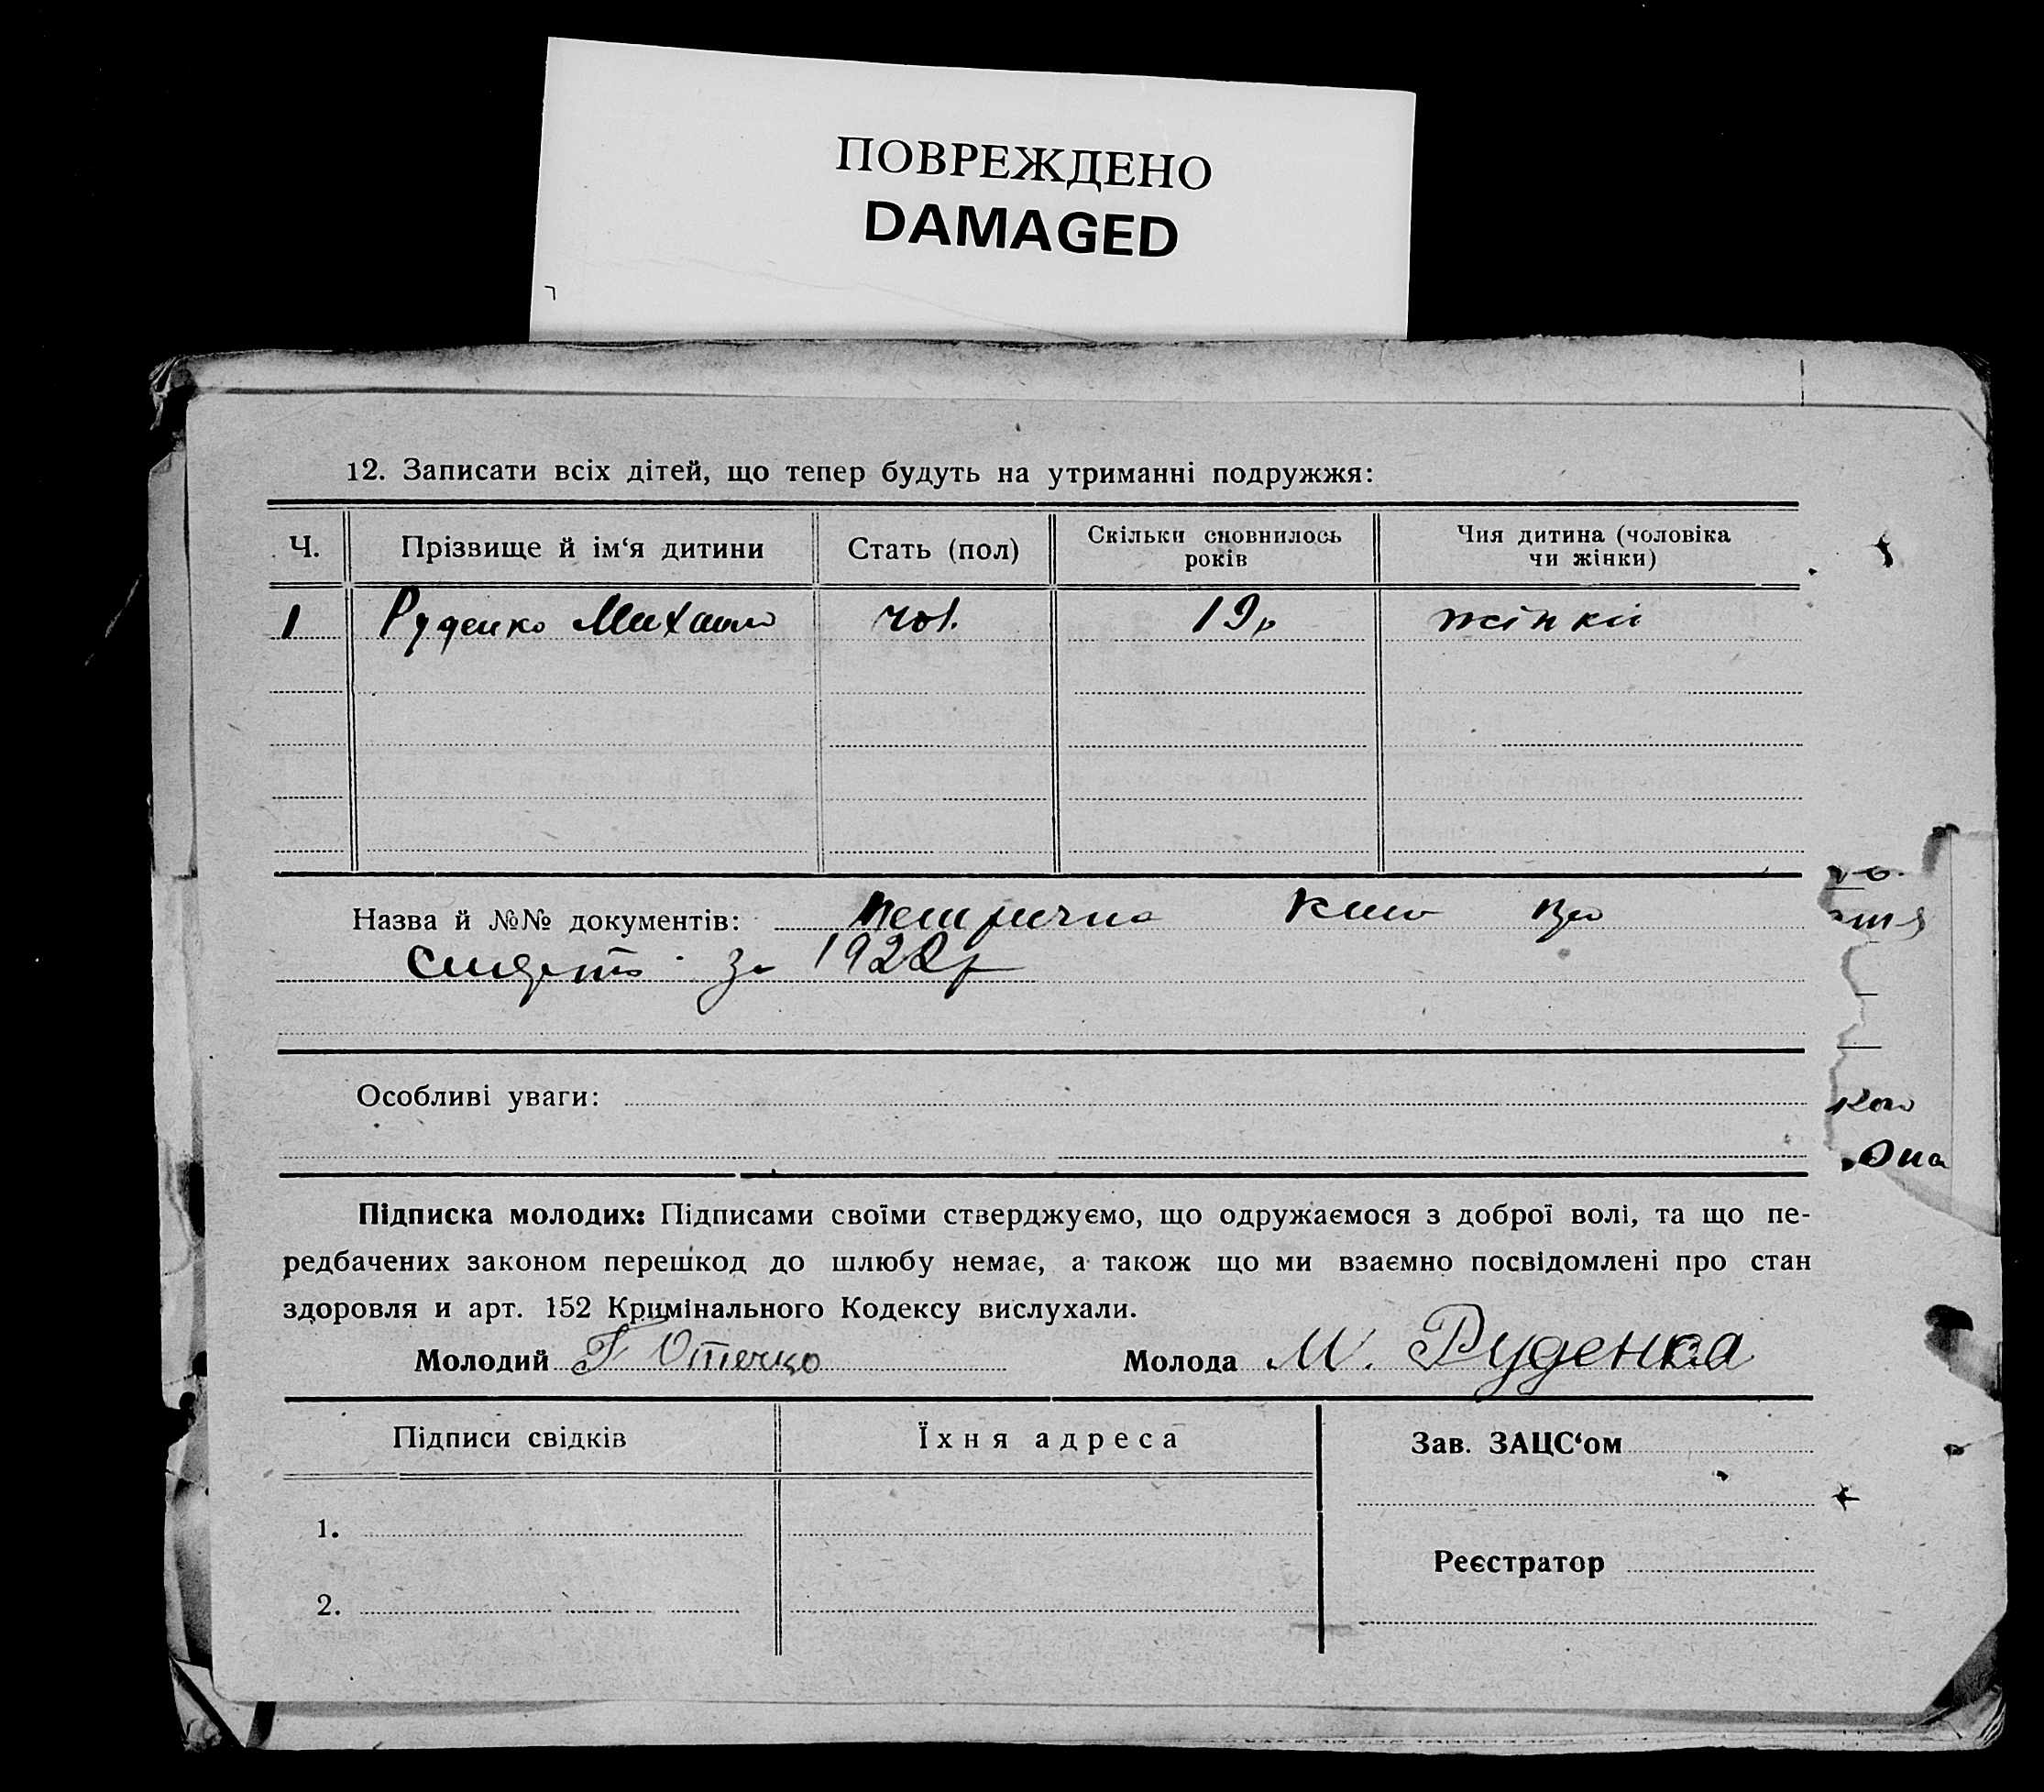 ПОВРЕЖДЕНО
DAMAGED
12. Записати всіх дітей, що тепер будуть на утриманні подружжя:
Ч. Прізвище й ім‘я дитини Стать (пол) Скільки сповнилось років Чия дитина (чоловіка чи жінки)
1 Руденко Михайло чол. 19р жінки
Назва й №№ документів: метрична
за 1922р
Особливі уваги:
Підписка молодих: Підписами своїми стверджуємо, що одружаємося з доброї волі, та що пе-
редбачених законом перешкод до шлюбу немає, а також що ми взаємно посвідомлені про стан
здоровля и арт. 152 Кримінального Кодексу вислухали.
Молодий Г Отечко Молода М. Руденка
Підписи свідків Їхня адреса Зав. ЗАЦС‘ом
1.
Реєстратор
2.